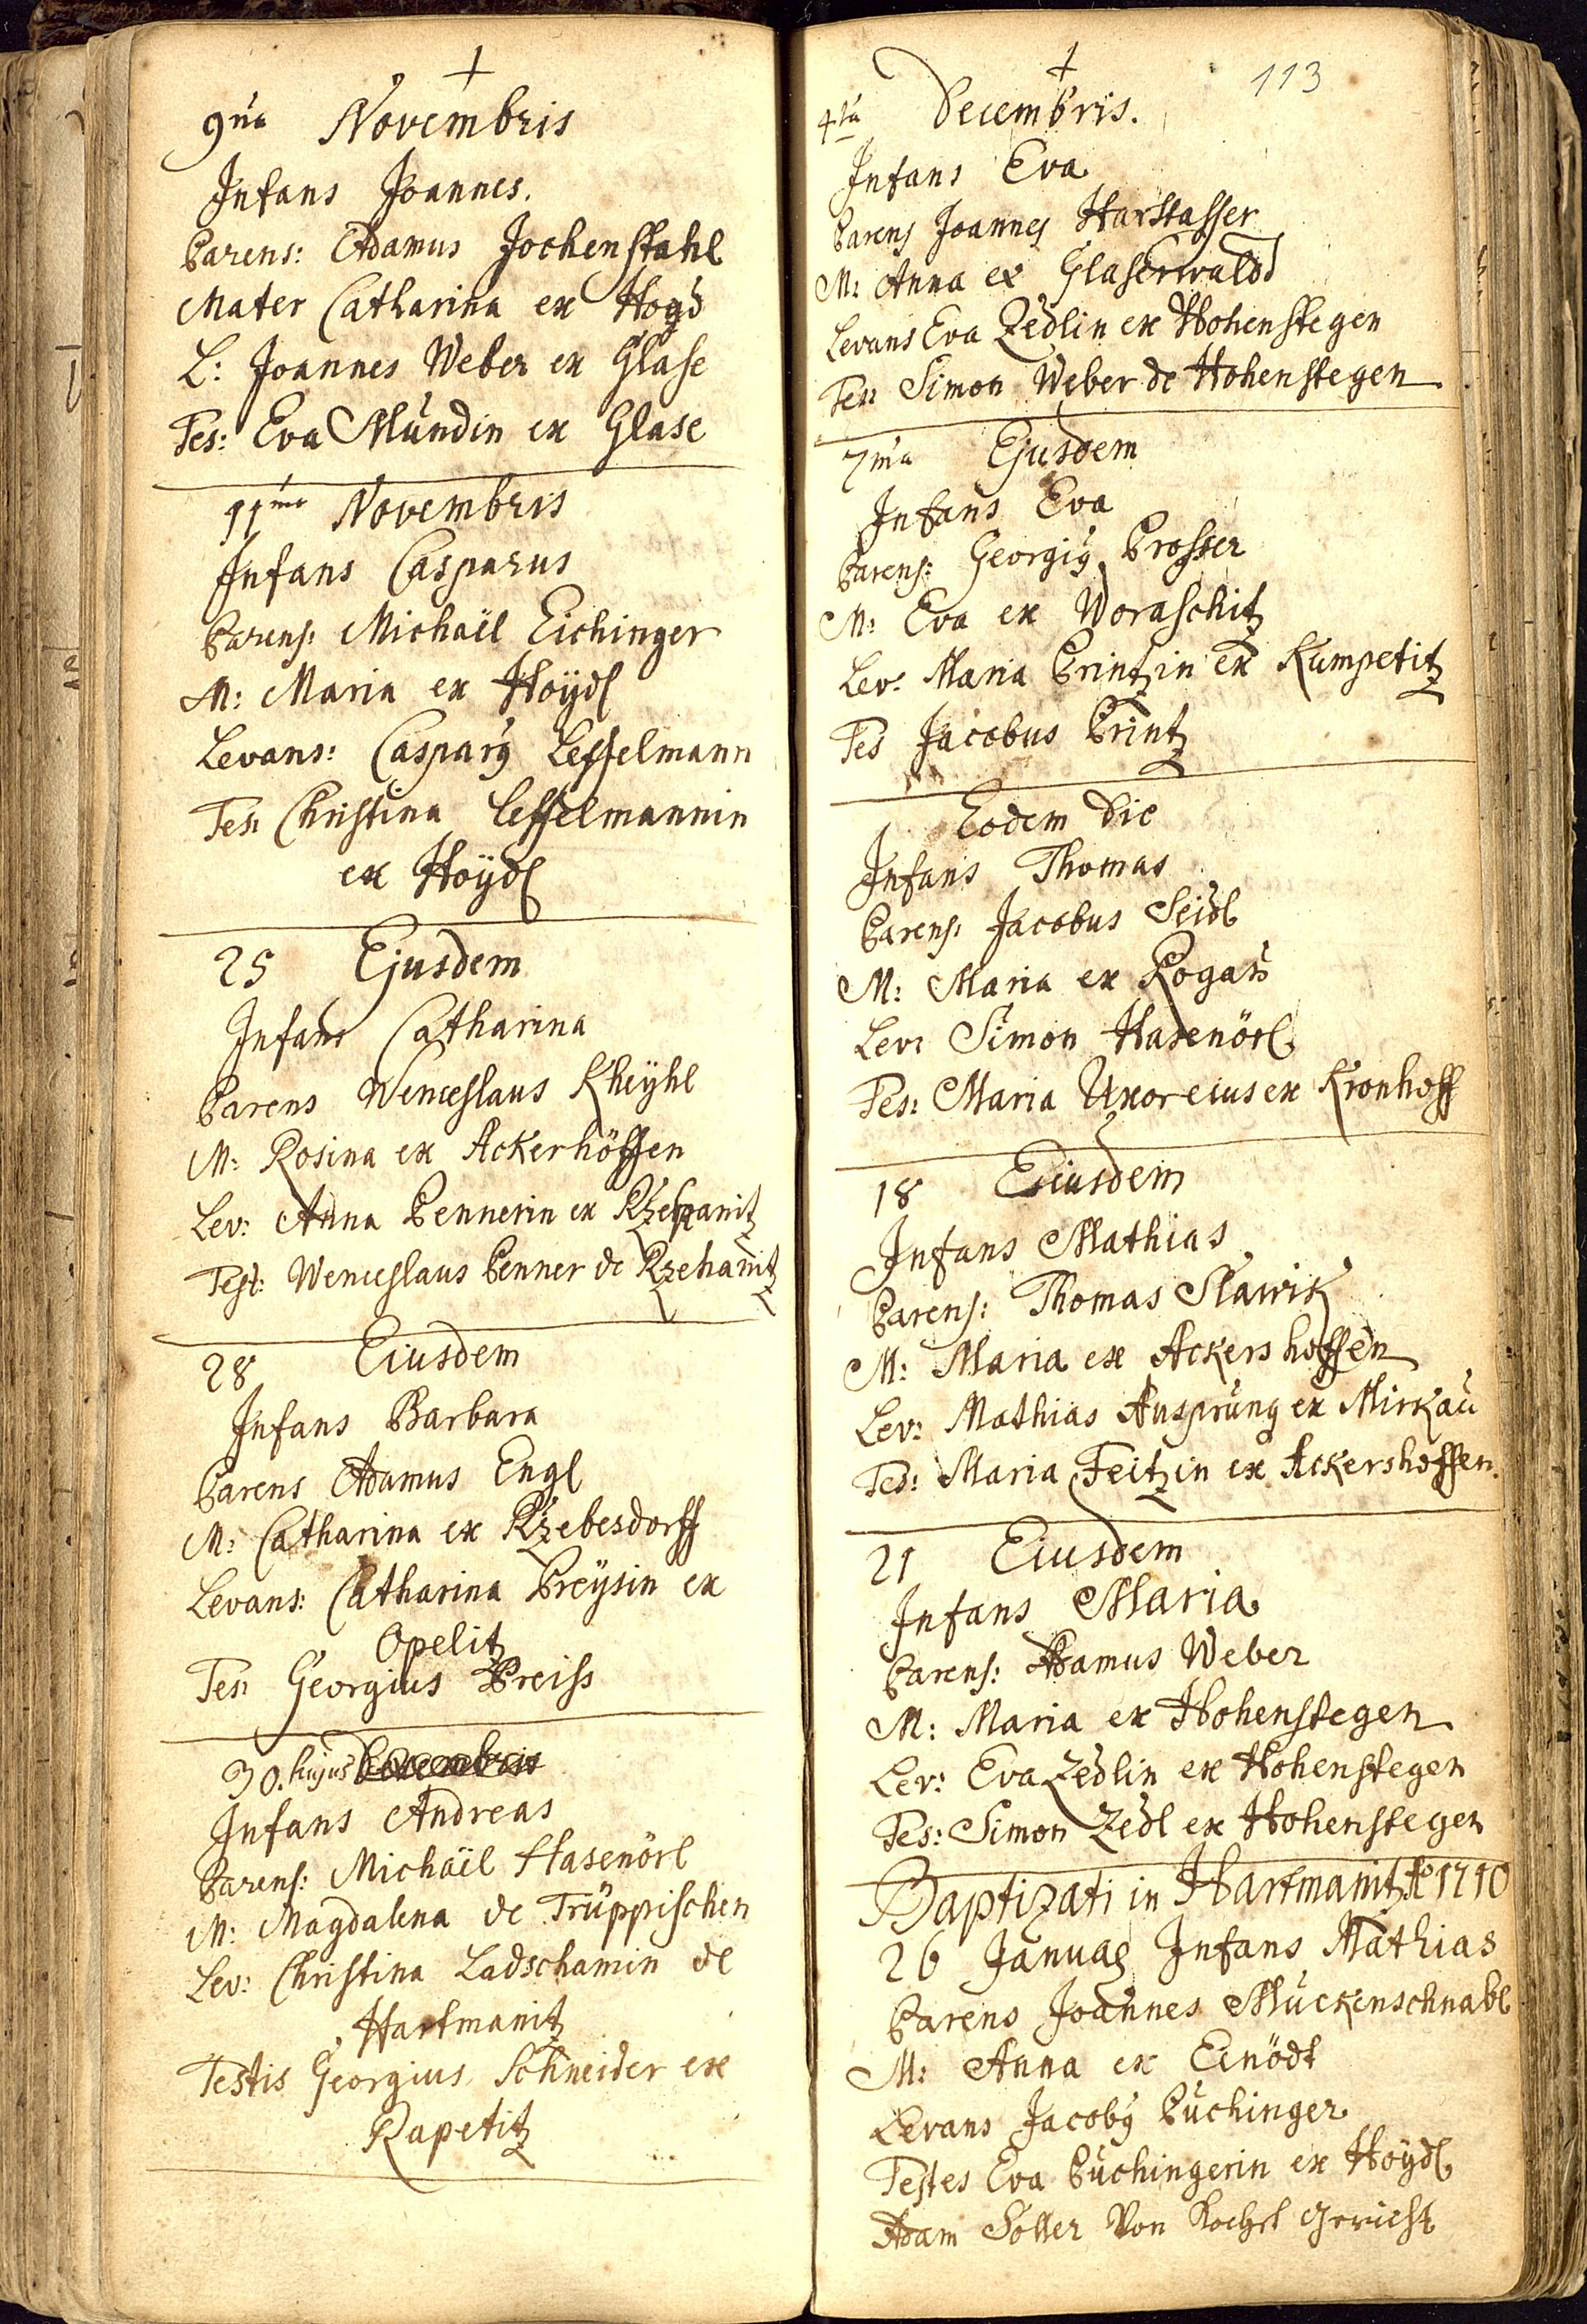 †
9na Novembris
Infans Joannes.
Parens: Adamus Jochenstahl
Mater Catharina ex Hoyd
L: Joannes Weber ex Glase
Tes: Eva Mundin ex Glase
11ma Novembris
Infans Casparus
Parens: Michaël Eichinger
M: Maria ex Hoÿdl
Levans: Caspary Leffelmann
Tes: Christina Leffelmannin
ex Hoÿdl
25 Ejusdem
Infans Catharina
Parens Wenceslaus Kheÿhl
M: Rosina ex Ackerhöffen
Lev: Anna Pennerin ex Rzehanitz
Test: Wenceslaus Penner de Rzehanitz
28 Eiusdem
Infans Barbara
Parens Adamus Engl
M: Catharina ex Rzebesdorff
Levans: Catharina Preÿsin ex
Opelitz
Tes: Georgius Preiss
30. hujus
Infans Andreas
Parens: Michaël Hasenörl
M: Magdalena de Trüppischen
Lev: Christina Ladschamin de
Hartmanitz
Testis Georgius Schneider ex
Rapetitz
† 113
4ta Decembris.
Infans Eva
Parens Joannes Harstasser
M: Anna ex Glaserwald
Levans Eva Zedlin ex Hohenstegen
Tes: Simon Weber de Hohenstegen
7ma Ejusdem
Infans Eva
Parens: Georgiy Prosser
M: Eva ex Woraschitz
Lev: Maria Printzin ex Kumpetitz
Tes Jacobus Printz
Eodem Die
Infans Thomas
Parens: Jacobus Seidl
M: Maria ex Rogau
Lev: Simon Hasenörl
Tes: Maria Uxor eius ex Kronhoff
18 Eiusdem
Infans Mathias
Parens: Thomas Slawik
M: Maria ex Ackershoffen
Lev: Mathias Ansprung ex Mirkau
Tes: Maria Feitzin ex Ackershoffen.
21 Eiusdem
Infans Maria
Parens: Adamus Weber
M: Maria ex Hohenstegen
Lev: Eva Zedlin ex Hohenstegen
Tes: Simon Zedl ex Hohenstegen
Baptizati in Hartmanitz Ao 1710
26 Januar Infans Mathias
Parens Joannes Muckenschnabl
M: Anna ex Einödt
Levans Jacoby Puchinger
Testes Eva Puchingerin ex Hoÿdl
Adam Söller Von Kochet Gericht